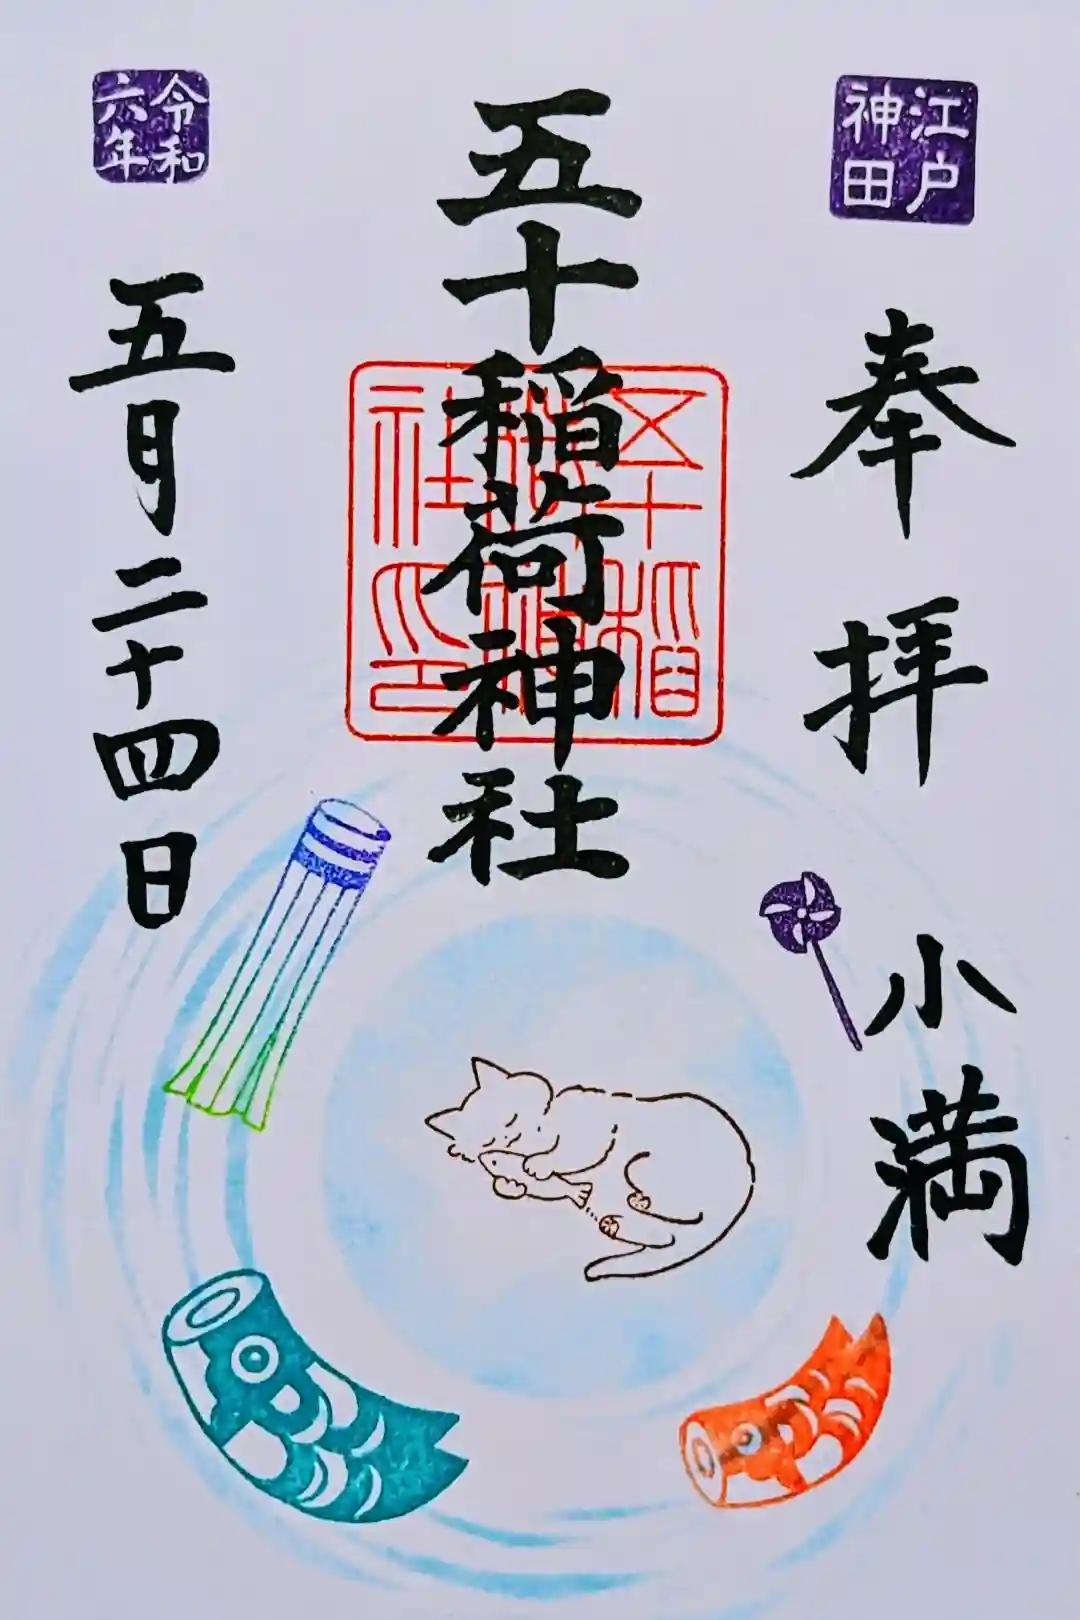 江戸
神田
奉拝
小満
五十稲荷神社
五十稲
荷神
社印
令和
六年
五月二十四日